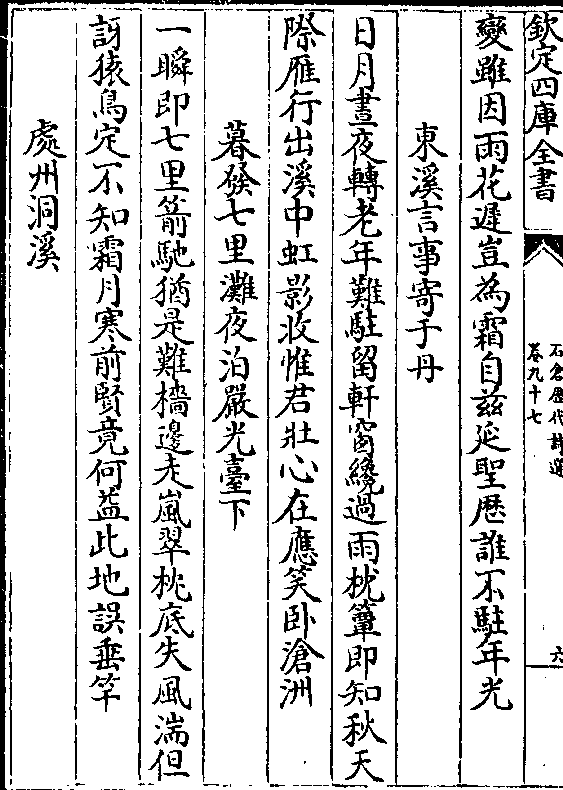 欽定四庫全書
石倉歷代詩選
卷九十七
六
變雖因雨花遲豈為霜自茲延聖厯誰不駐年光
東溪言事寄于丹
日月晝夜轉老年難駐留軒窗纔過雨枕簟即知秋天
際雁行出溪中虹影收惟君壯心在應笑卧滄洲
暮發七里灘夜泊嚴光臺下
一瞬即七里箭馳猶是難檣邊走嵐翠枕底失風湍但
訝猿鳥定不知霜月寒前賢竟何益此地誤垂竿
處州洞溪